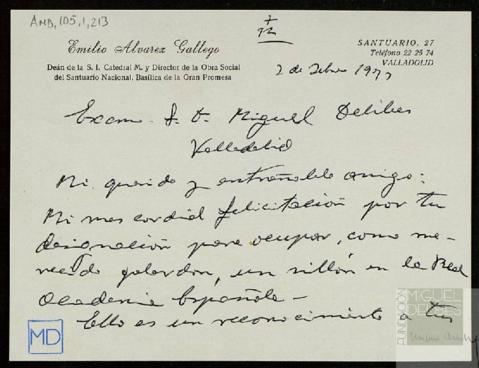 AMD, 105, 1, 213
Emilio Alvarez Gallego
Deán de la S. I. Catedral M. y Director de la Obra Social
del Santuario Nacional, Basílica de la Gran Promesa
SANTUARIO, 27
Teléfono 22 25 74
VALLADOLID
2 de Febrero 1973
Excmo. S. D. Miguel Delibes
Valladolid
Mi querido y entrañable amigo:
Mi mas cordial felicitación por tu
designación para ocupar, como me-
recido galardon, un sillón en la Real
Academia Española -
Ello es un reconocimiento a tu
MD
FUNDACIÓN
MIGUEL
DELIBES